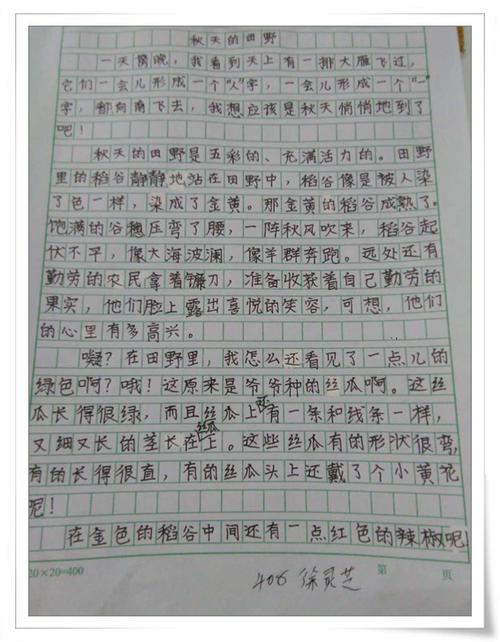 秋天的田野
一天傍晚，我看到天上有一排大雁飞过，
它们一会儿形成一个“人”字，一会儿形成一个“一”
字，都向南飞去，我想应该是秋天悄悄地到了
吧！
秋天的田野是五彩的、充满活力的。田野
里的稻谷静静地站在田野中，稻谷像是被人染
了色一样，染成了金黄。那金黄的稻谷成熟了。
饱满的谷穗压弯了腰，一阵秋风吹来，稻谷起
伏不平，像大海波澜，像羊群奔跑。远处还有
勤劳的农民拿着镰刀，准备收获着自己勤劳的
果实，他们脸上露出喜悦的笑容，可想，他们
的心里有多高兴。
嗯？在田野里，我怎么还看见了一点儿的
绿色啊？哦！这原来是爷爷种的丝瓜啊。这丝
瓜长得很绿，而且丝瓜上还有一条和线条一样，
又细又长的茎长在丝瓜上。这些丝瓜有的形状很弯，
有的长得很直，有的丝瓜头上还戴了个小黄花
呢！
在金色的稻谷中间还有一点红色的辣椒呢！
20×20=400
第 页
406 徐灵芝